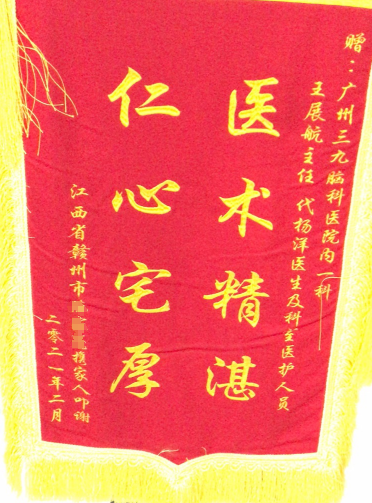 赠：广州三九脑科医院内一科——
王展航主任 代杨洋医生及科主医护人员
医术精湛
仁心宅厚
江西省赣州市 携家人叩谢
二零二一年二月